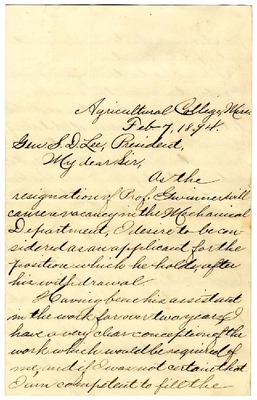 Agricultural College, Miss.
Feb 7, 1894.
Gen. S. D. Lee, President,
My dear Sir,
As the
resignation of Prof. Gwinner will
cause a vacancy in the Mechanical
Department, I desire to be con-
sidered as an applicant for the
position which he holds, after
his withdrawal.
Having been his assistant
in the work for over two years I
have a very clear conception of the
work which would be required of
me, and if I was not certain that
I am competent to fill the